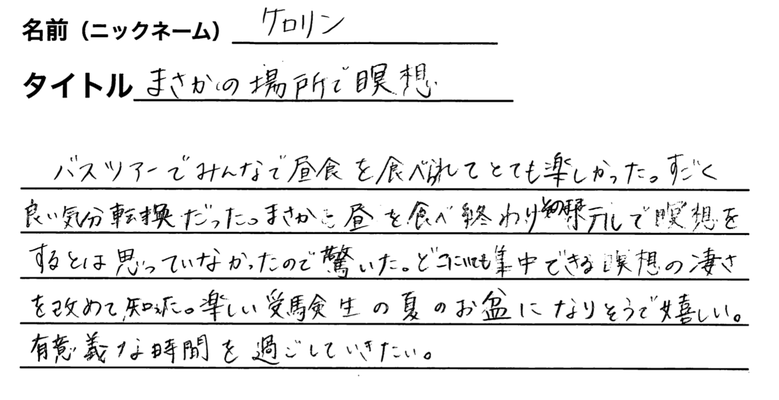 名前（ニックネーム） ケロリン
タイトル まさかの場所で瞑想
バスツアーでみんなで昼食を食べれてとても楽しかった。すごく
良い気分転換だった。まさか、昼を食べ終わりその場ホテルで瞑想を
するとは思っていなかったので驚いた。どこにいても集中できる瞑想の凄さ
を改めて知った。楽しい受験生の夏のお盆になりそうで嬉しい。
有意義な時間を過ごしていきたい。